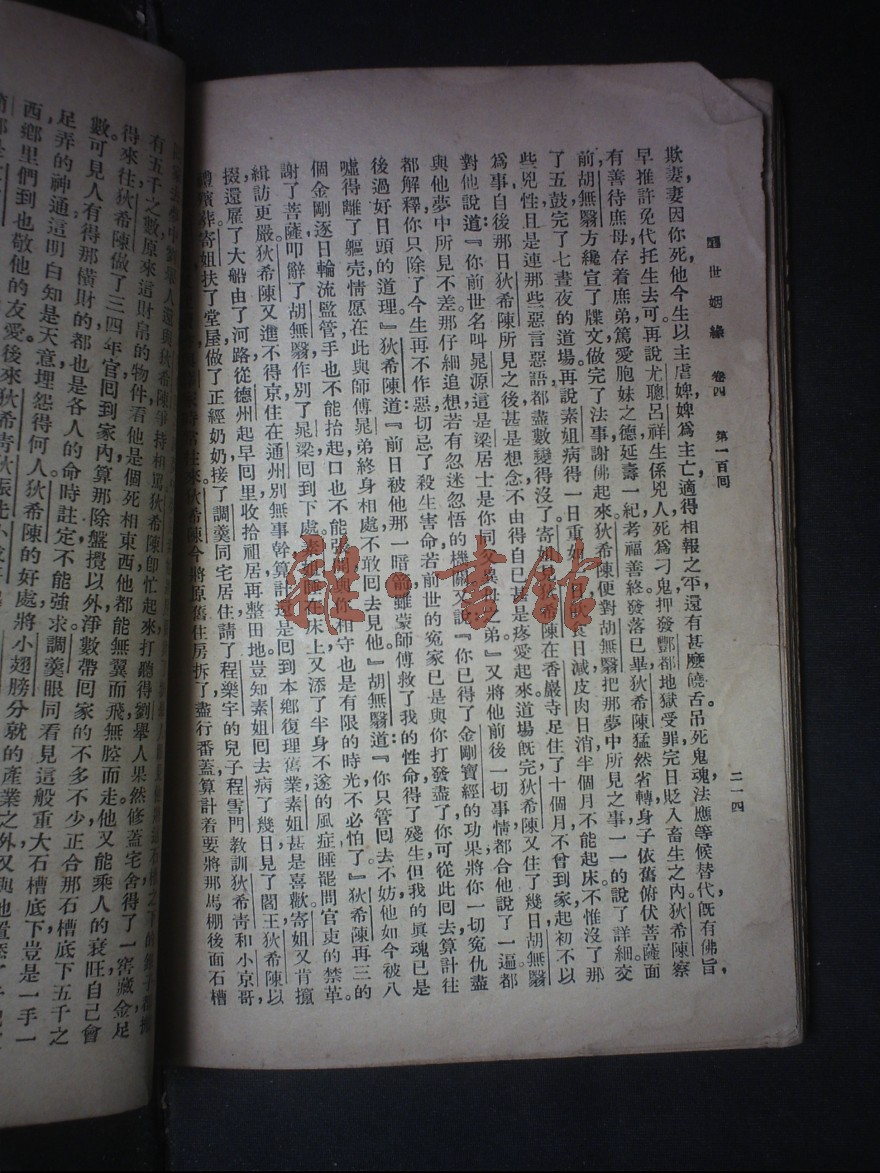 醒世姻緣 卷四 第一百回 二一四
欺妻妻因你死他今生以主虐婢婢爲主亡適得相報之平還有甚麼饒舌吊死鬼魂法應等候替代旣有佛旨
早推許免代托生去可再說尤聰呂祥生係兇人死爲刁鬼押發酆都地獄受罪完日貶入畜生之內狄希陳察
有善待庶母存着庶弟篤愛胞妹之德延壽一紀考福善終發落已畢狄希陳猛然省轉身子依舊俯伏菩薩面
前胡無翳方纔宣了牒文做完了法事謝佛起來狄希陳便對胡無翳把那夢中所見之事一一的說了詳細交
了五鼓完了七晝夜的道場再說素姐病得一日重如一日飲食日減皮肉日消半個月不能起床不惟沒了那
些兇性且是連那些惡言惡語都盡數變得沒了寄姐見狄希陳在香巖寺足住了十個月不曾到家起初不以
爲事自後那日狄希陳所見之後甚是想念不由得自己甚是疼愛起來道場旣完狄希陳又住了幾日胡無翳
對他說道『你前世名叫晁源這是梁居士是你同父異母之弟』又將他前後一切事情都合他說了一遍都
與他夢中所見不差那仔細追想若有忽迷忽悟的機關又說『你已得了金剛寶經的功果將你一切冤仇盡
都解釋你只除了今生再不作惡切忌了殺生害命若前世的冤家已是與你打發盡了你可從此回去算計往
後過好日頭的道理』狄希陳道『前日被他那一暗箭雖蒙師傅救了我的性命得了殘生但我的眞魂已是
噓得離了軀壳情愿在此與師傅晁弟終身相處不敢回去見他』胡無翳道『你只管回去不妨他如今被八
個金剛逐日輪流監管手也不能抬起口也不能張開與你相守也是有限的時光不必怕了』狄希陳再三的
謝了菩薩叩辭了胡無翳作別了晁梁回到下處素姐倒在床上又添了半身不遂的風症睡罷問官吏的禁革
緝訪更嚴狄希陳又進不得京住在通州別無事幹算計還是回到本鄉復理舊業素姐甚是喜歡寄姐又肯攛
掇還雇了大船由了河路從德州起早回里收拾祖居再整田地豈知素姐回去病了幾日見了閻王狄希陳以
禮殯葬寄姐扶了堂屋做了正經奶奶接了調羹同宅居住請了程樂宇的兒子程雪門教訓狄希青和小京哥
往來狄希陳今將原舊住房拆了盡行番蓋算計着要將那馬棚後面石槽
有五千之數原來這財帛的物件看他是個死相東西他都能無翼而飛無脛而走他又能乘人的衰旺自己會
得來往狄希陳做了三四年官回到家內算那除盤攪以外淨數帶回家的不多不少正合那石槽底下五千之
數可見人有得那橫財的都也是各人的命時註定不能強求調羹眼同看見這般重大石槽底下豈是一手一
足弄的神通這明白知是天意埋怨得何人狄希陳的好處將小翅膀分就的產業之外又與他置
西鄉里們到也敬他的友愛後來狄希青
雜·書館